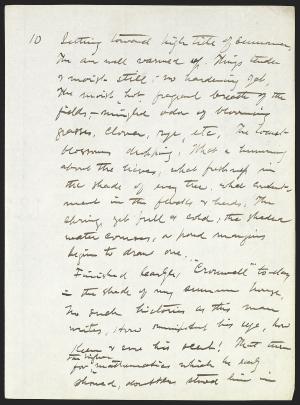 10 Setting toward high tide of summer,
The air well warmed up, Things tender
& moist still; no hardening yet,
The moist, hot, fragrant breath of the
fields, – mingled odor of blooming
grasses, clover, rye, etc, The locust
blossoms dropping; What a humming
about the hives; what freshness in
the shade of every tree, what
ment in the flocks & herds; The
spring, yet full & cold; the shaded
water courses, & pond margins
begin to draw one,
Finished Carlyle's "Cromwell" to-day
in the shade of my summer house,
No such histories as this man
writes, How his eye, how
keen & sure his ! That turn
for
for mathematics which he early
showed, doubtless stood him in